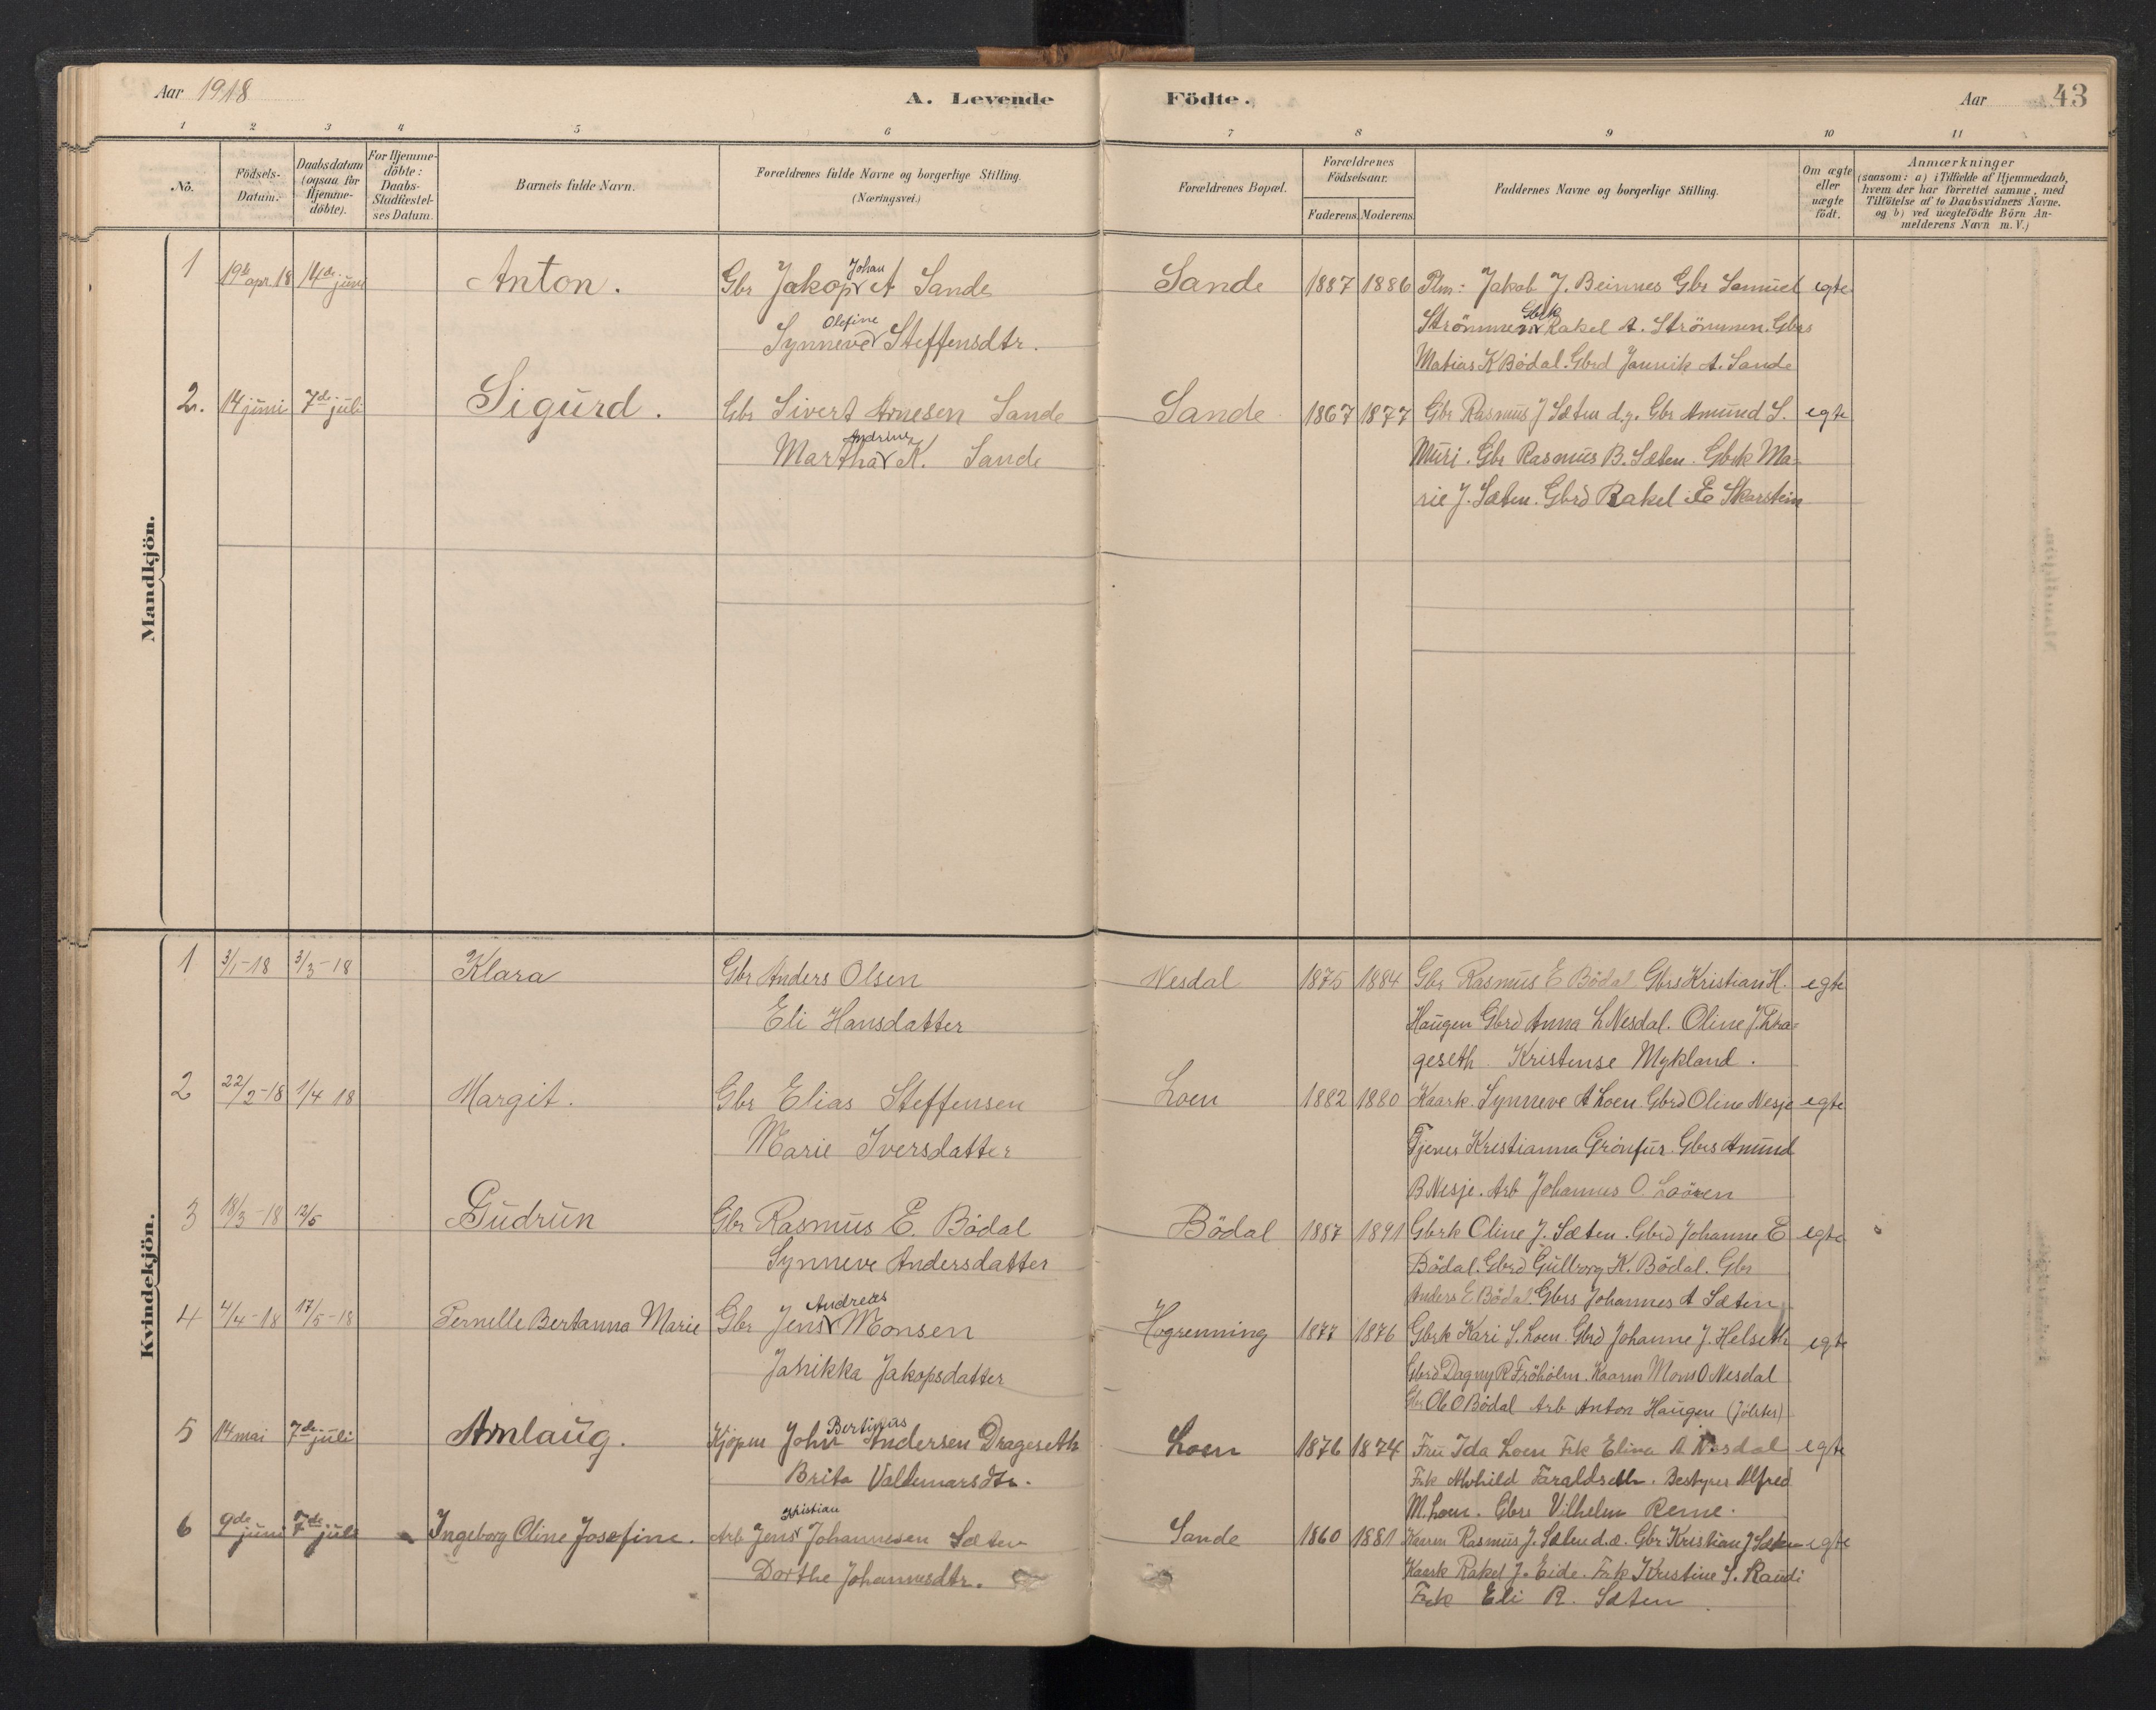 Aar 1918
A. Levende Födte.
Aar 43
1 2 3 4 5 6 7 8 9 10 11
No.
Födsels-Datum.
Daabsdatum (ogsaa for Hjemme-döbte).
For Hjemme-döbte: Daabs-Stadfæstel-ses Datum.
Barnets fulde Navn.
Forældrenes fulde Navne og borgerlige Stilling. (Næringsvei.)
Forældrenes Bopæl.
Forældrenes Födselsaar.
Faderens. Moderens.
Faddernes Navne og borgerlige Stilling.
Om ægte eller uægte födt.
Anmærkninger
(saasom: a) i Tilfælde af Hjemmedaab,
hvem der har forrettet samme, med
Tilföielse af to Daabsvidners Navne.
og b) ved uægtefödte Börn An-
melderens Navn m. V.)
Mandkjön.
1 19de apr. 18 14de juni Anton. Gbr Jakop Johan A Sande Sande 1887 1886 Plm: Jakob J. Beinnes Gbr Samuel egte
Synneve Olefine Steffensdtr. Strömmen Gbrk Rakel A. Strömmen. Gbrs
Matias K Bødal. Gbrd Jannik A. Sande
2. 14 juni 7de juli Sigurd. Gbr Sivert Arnesen Sande Sande 1867 1877 Gbr Rasmus J Sæten d.y. Gbr Amund S. egte
Martha Andrine K. Sande Muri. Gbr Rasmus B. Sæten. Gbrk Ma-
rie J. Sæten. Gbrd Rakel E Skarstein
Kvindekjön.
1 3/1-18 3/3-18 Klara Gbr Anders Olsen Nesdal 1875 1884 Gbr Rasmus E Bödal Gbrs Kristian H. egte
Eli Hansdatter Haugen Gbrd Anna L Nesdal. Oline J. Dra-
geseth Kristense Mykland.
2 22/2-18 1/4 18 Margit. Gbr Elias Steffensen Loen 1882 1880 Kaark. Synneve A Loen Gbrd Oline Nesje egte
Marie Iversdatter Tjenes Kristianna Grönfur. Gbrs Amund
B Nesje. Arb Johannes O Loöen
3 18/3-18 12/5 Gudrun Gbr Rasmus E. Bödal Bödal 1887 1891 Gbrk Oline J. Sæten. Gbrd Johanne E egte
Synneve Andersdatter Bödal. Gbrd Gulborg K. Bödal. Gbr
Anders E Bödal. Gbrs Johannes A Sæten
4 4/4-18 17/5-18 Pernelle Bertanna Marie Gbr Jens Andreas Monsen Hogrenning 1877 1876 Gbrk Kari S. Loen Gbrd Johanne J. Helseth egte
Janikka Jakopsdatter Gbrd Dagny R Fröholm. Kaarm Mons O Nesdal
Gbr Ole O Bödal Arb Anton Haugen (Jölster)
5 14 mai 7de juli Arnlaug. Kjöpm John Bertinus Andersen Drageseth Loen 1876 1874 Fru Ida Loen Frk Elina A Nesdal egte
Brita Valdemarsdtr. Frk Alvhild Faraldseth. Bestyrer Alfred
M. Loen. Gbrs Vilhelm Reme.
6 9de juni 7de juli Ingeborg Oline Josefine. Arb Jens Kristian Johannesen Sæten Sande 1860 1881 Kaarm Rasmus J. Sæten d.æ. Gbr Kristian J Sæten egte
Dorthe Johannesdtr. Kaark Rakel J. Eide. Frk Kristine S. Raudi
Frk Eli R. Sæten